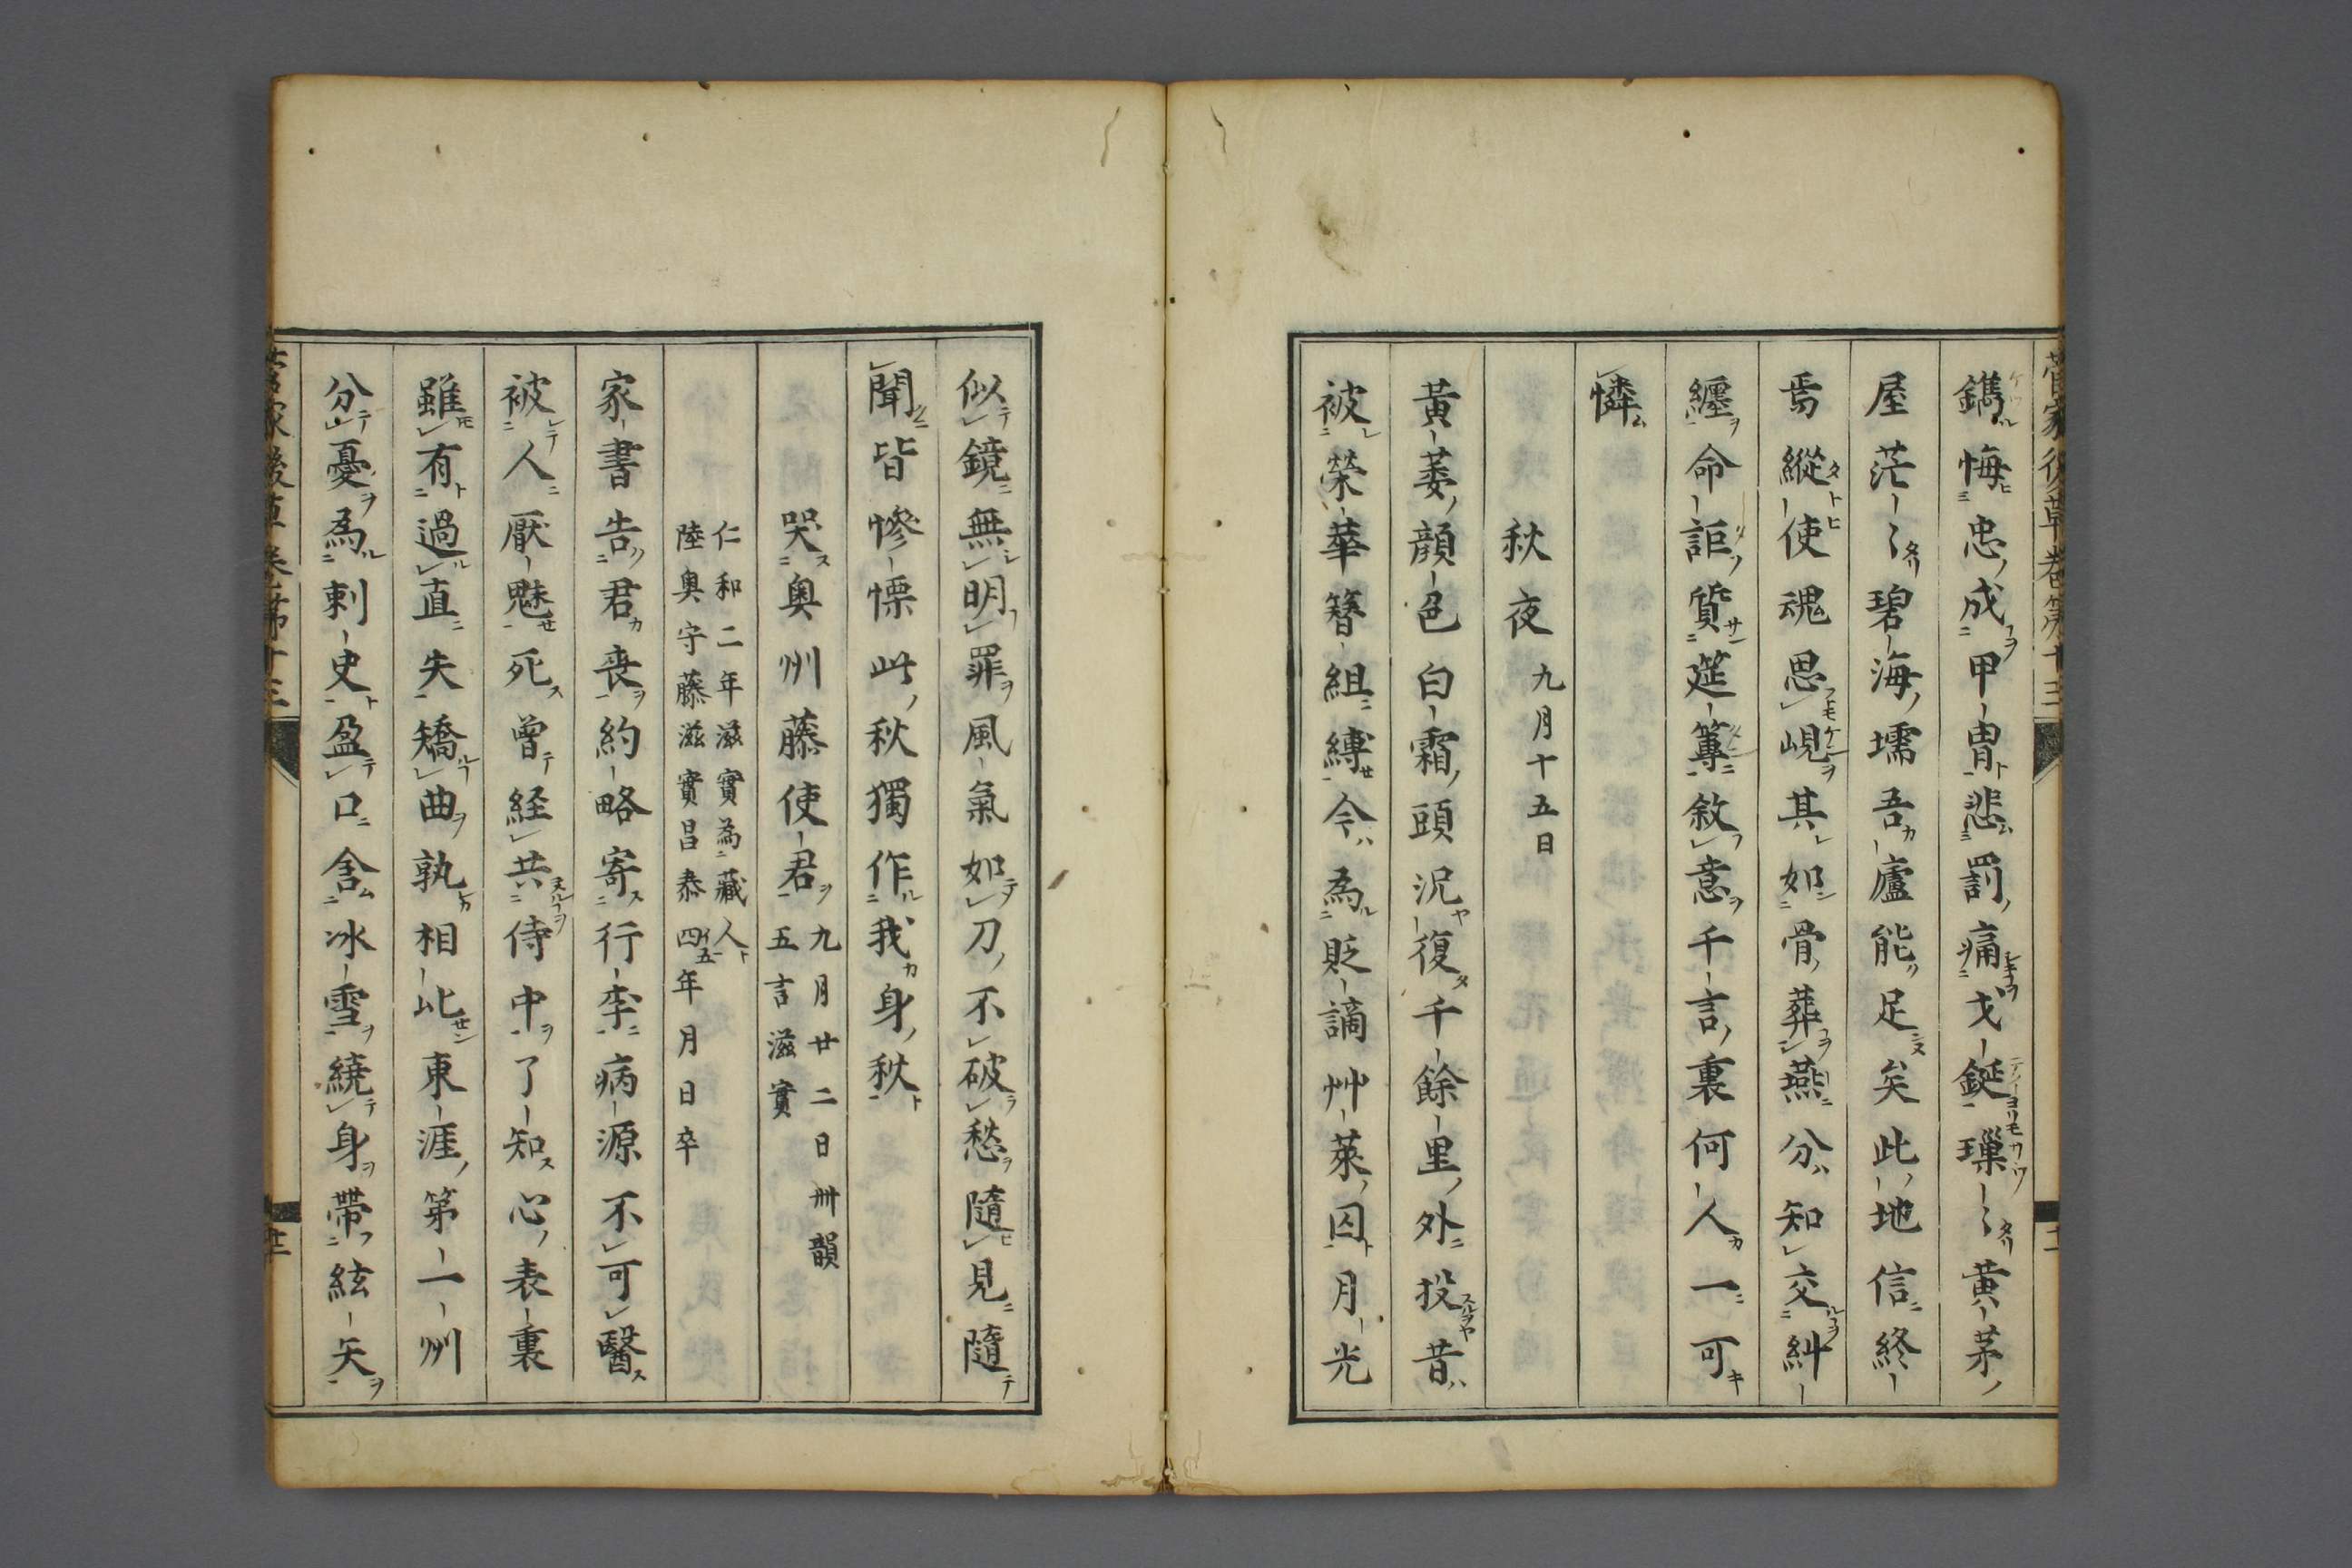 鐫悔忠成甲冑悲罰痛戈鋋璅〻黃茅
屋茫〻碧海壖吾廬能足矣此地信終
焉縱使魂思峴其如骨葬燕分知交糾
纏命詎質筳篿敘意千言裏何人一可
憐
秋夜 九月十五日
黃萎顏色白霜頭況復千餘里外投昔
被榮華簪組縛今為貶謫艸萊囚月光
似鏡無明罪風氣如刀不破愁隨見隨
聞皆慘慄此秋獨作我身秋
哭奧州藤使君 九月廿二日卌韻
五言滋實
仁和二年滋實為藏人
陸奧守藤滋實昌泰四年月日卒
家書告君喪約略寄行李病源不可醫
被人厭魅死曾経共侍中了知心表裏
雖有過直失矯曲孰相比東涯第一州
分憂為刺史盈口含冰雪繞身帶絃矢